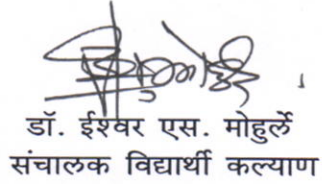 डॉ. ईश्वर एस. मोहुर्ले
संचालक विद्यार्थी कल्याण